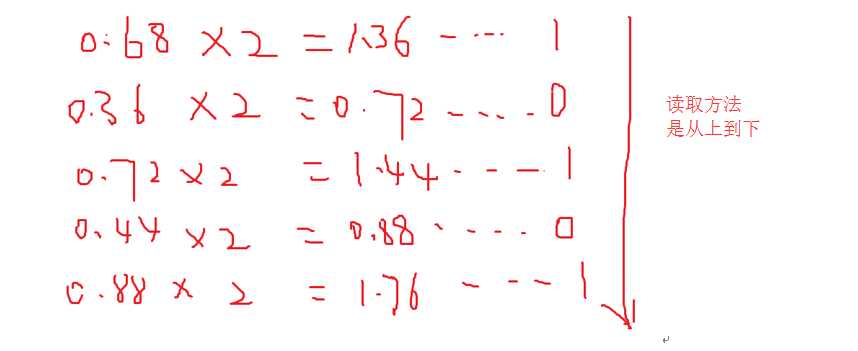 0.68 × 2 = 1.36 ----- 1
0.36 × 2 = 0.72 ----- 0
读取方法
是从上到下
0.72 × 2 = 1.44 ----- 1
0.44 × 2 = 0.88 ----- 0
0.88 × 2 = 1.76 ----- 1